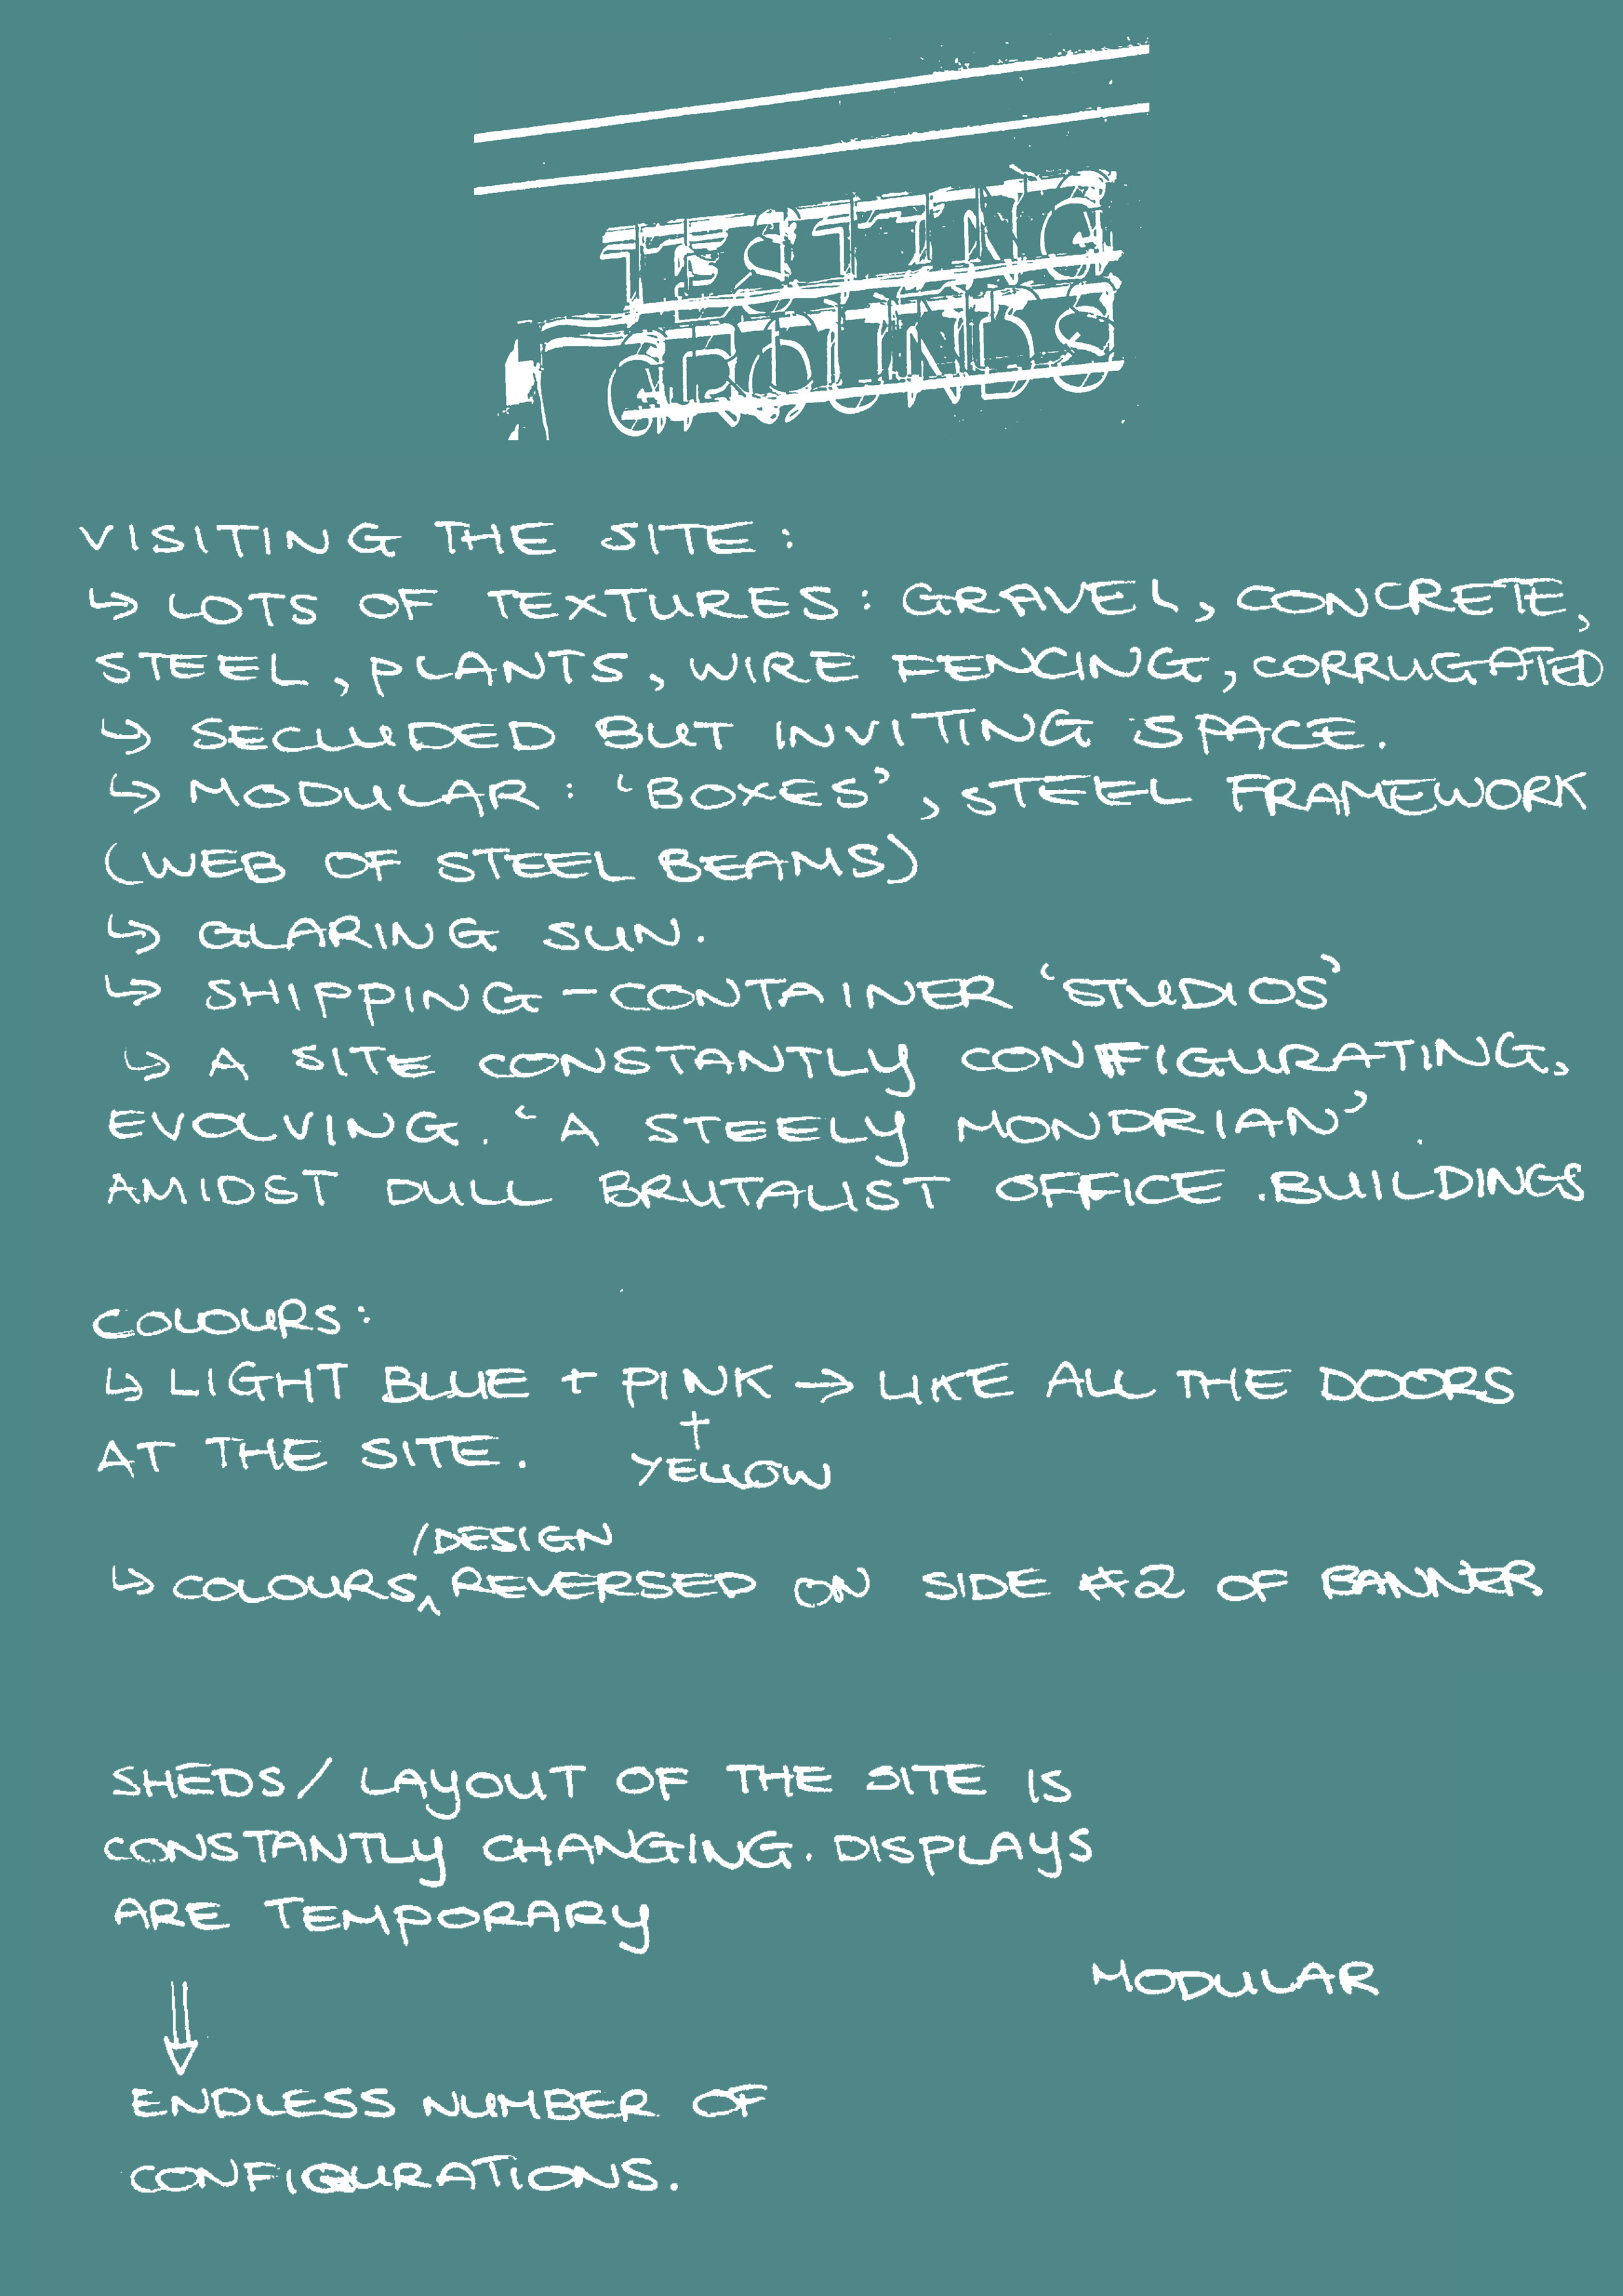 TESTING
GROUNDS
VISITING THE SITE :
↳ LOTS OF TEXTURES : GRAVEL, CONCRETE,
STEEL, PLANTS, WIRE FENCING, CORRUGATED
↳ SECLUDED BUT INVITING SPACE.
↳ MODULAR : 'BOXES', STEEL FRAMEWORK
(WEB OF STEEL BEAMS)
↳ GLARING SUN.
↳ SHIPPING-CONTAINER 'STUDIOS'
↳ A SITE CONSTANTLY CONFIGURATING,
EVOLVING. 'A STEELY MONDRIAN'.
AMIDST DULL BRUTALIST OFFICE BUILDINGS
COLOURS:
↳ LIGHT BLUE + PINK → LIKE ALL THE DOORS
+
AT THE SITE. YELLOW
/DESIGN
↳ COLOURS^ REVERSED ON SIDE #2 OF BANNER
SHEDS/ LAYOUT OF THE SITE IS
CONSTANTLY CHANGING. DISPLAYS
ARE TEMPORARY
MODULAR
⇓
ENDLESS NUMBER OF
CONFIGURATIONS.